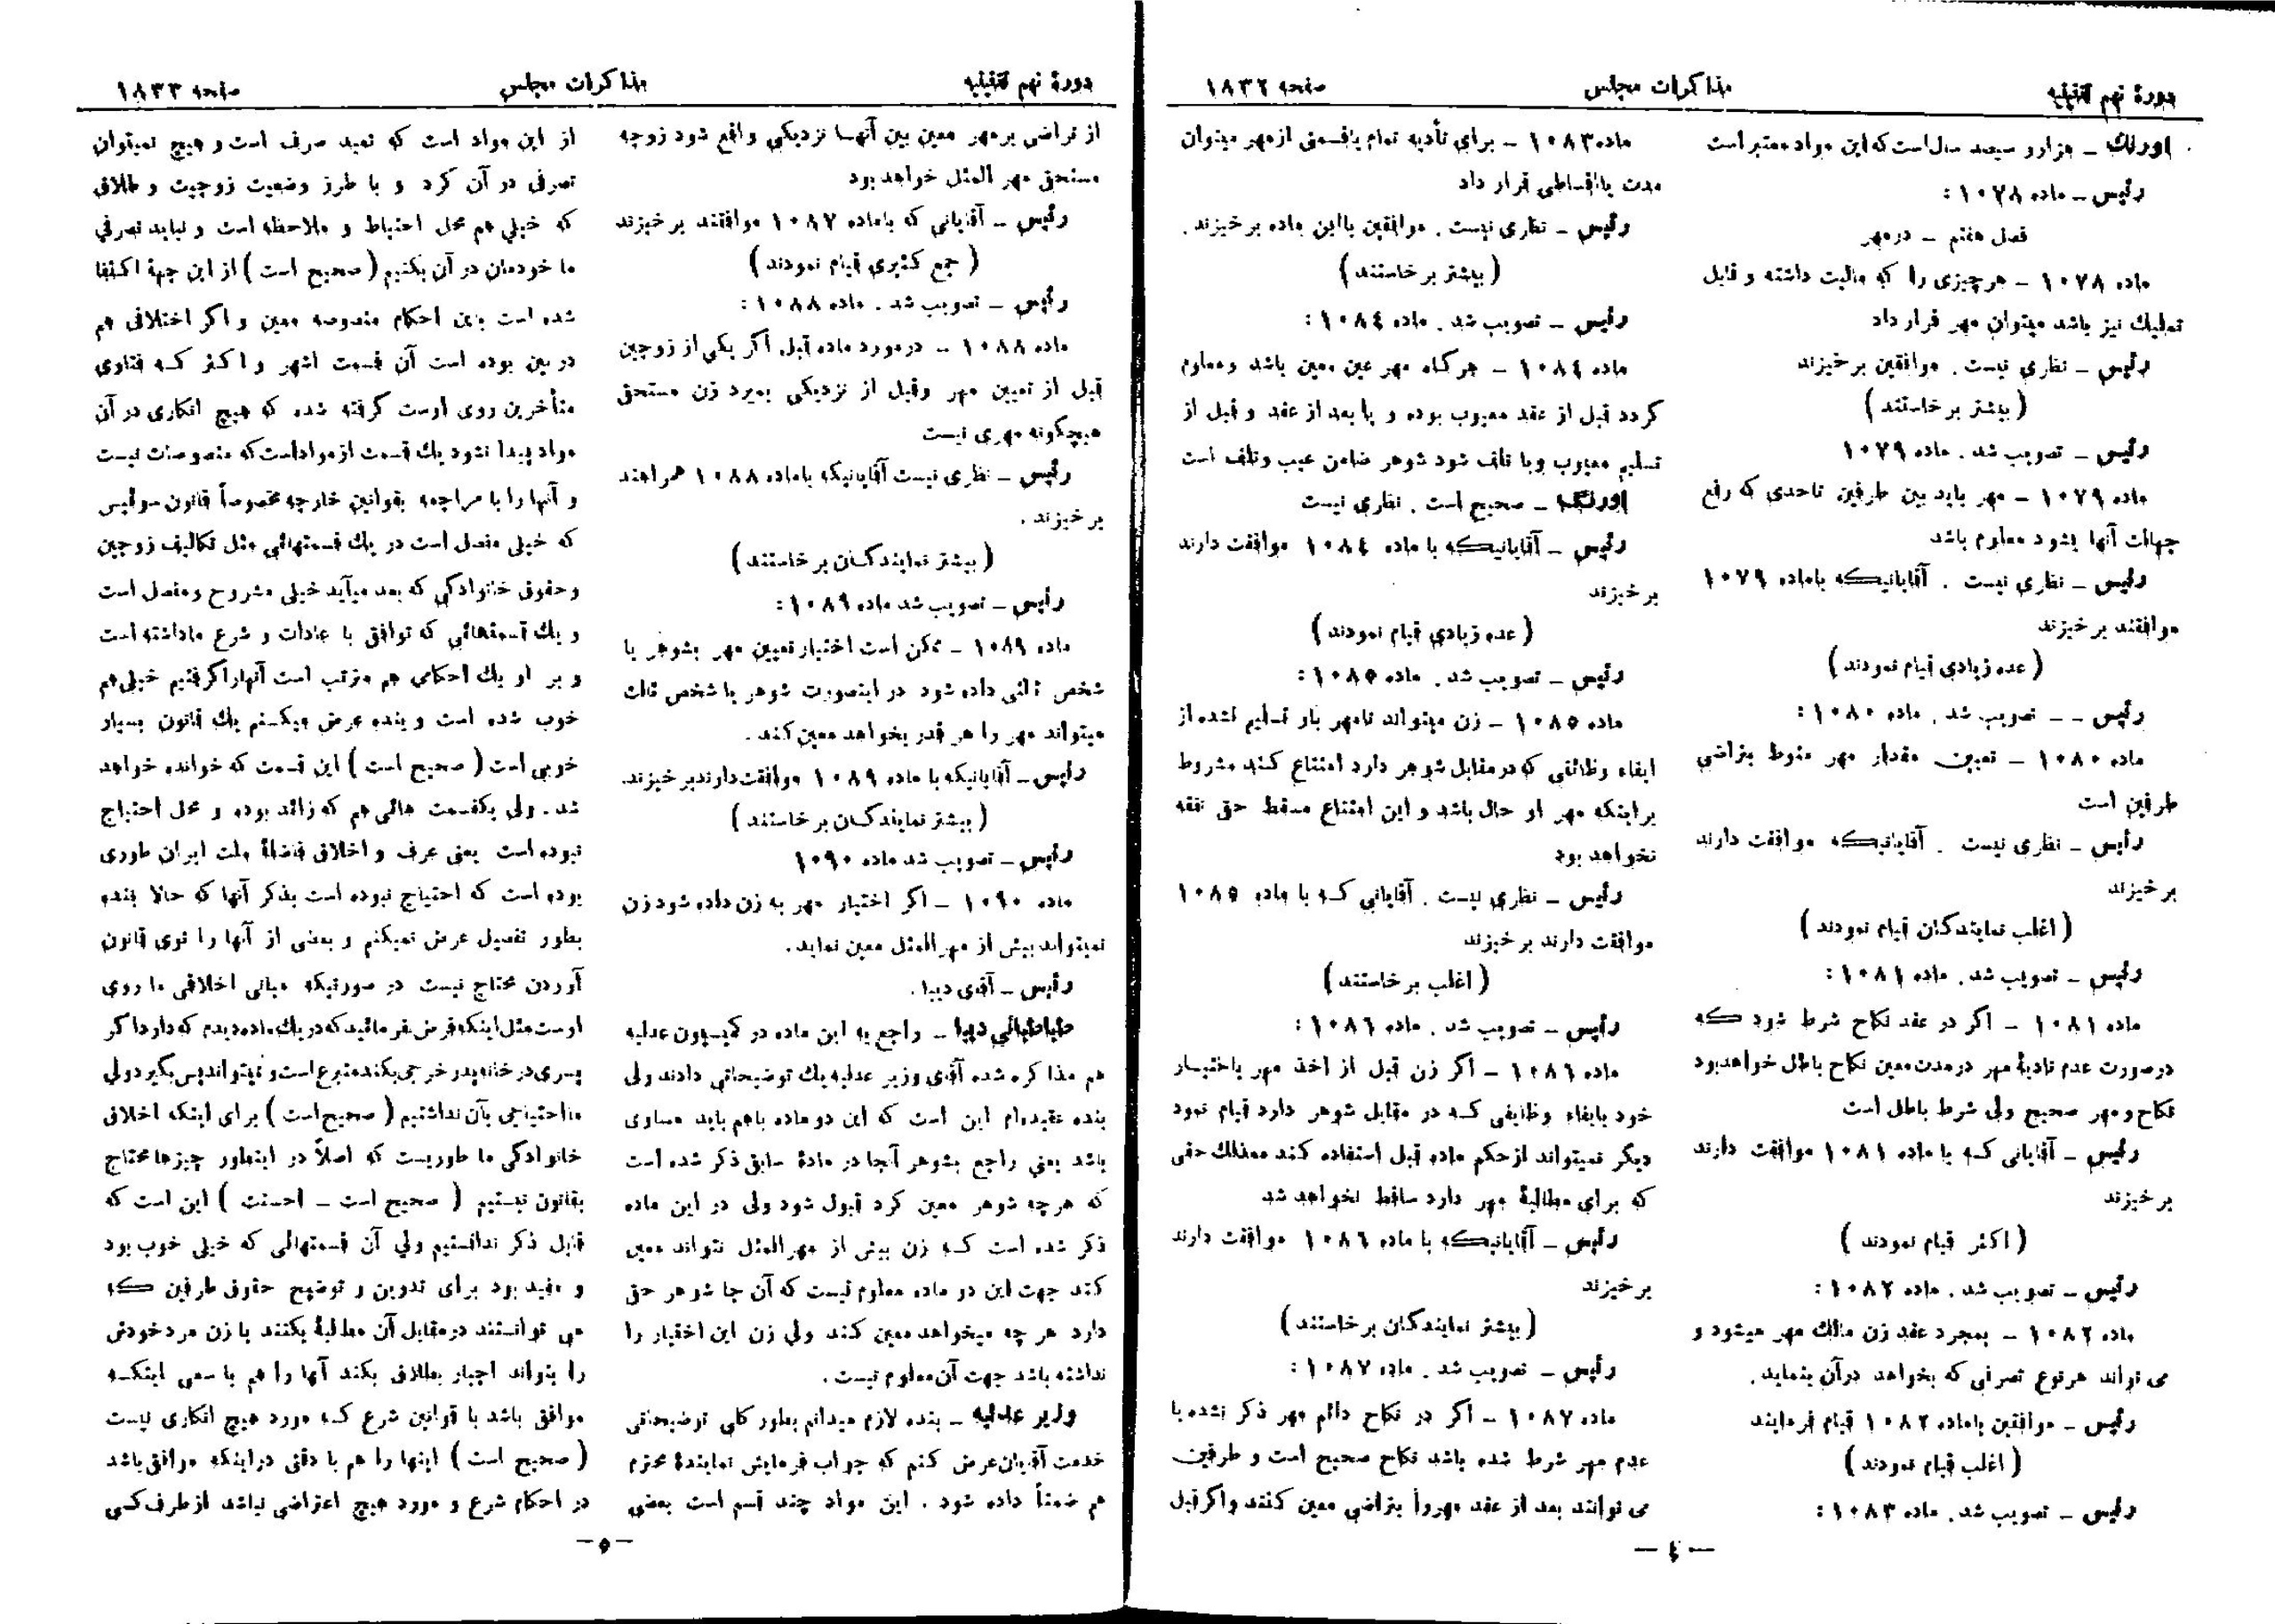 دورهٔ نهم تقنینیه
مذاکرات مجلس
صفحه ۱۸۳۲
اورنك – هزار و سیصد سال است که این مواد معتبر است
رئیس – ماده ۱۰۷۸ :
فصل هفتم – در مهر
ماده ۱۰۷۸ – هر چیزی را که مالیت داشته و قابل
تملیك نیز باشد میتوان مهر قرار داد
رئیس – نظری نیست . موافقین برخیزند
( بیشتر برخاستند )
رئیس – تصویب شد . ماده ۱۰۷۹
ماده ۱۰۷۹ – مهر باید بین طرفین تاحدی که رفع
جهالت آنها بشود معلوم باشد
رئیس – نظری نیست . آقایانیکه باماده ۱۰۷۹
موافقند برخیزند
( عده زیادی قیام نمودند )
رئیس – – تصویب شد . ماده ۱۰۸۰ :
ماده ۱۰۸۰ – تعیین مقدار مهر منوط بتراضی
طرفین است
رئیس – نظری نیست . آقایانیکه موافقت دارند
برخیزند
( اغلب نمایندگان قیام نمودند )
رئیس – تصویب شد . ماده ۱۰۸۱ :
ماده ۱۰۸۱ – اگر در عقد نکاح شرط شود که
در صورت عدم تادیهٔ مهر در مدت معین نکاح باطل خواهد بود
نکاح و مهر صحیح ولی شرط باطل است
رئیس – آقایانی که با ماده ۱۰۸۱ موافقت دارند
برخیزند
( اکثر قیام نمودند )
رئیس – تصویب شد . ماده ۱۰۸۲ :
ماده ۱۰۸۲ – بمجرد عقد زن مالك مهر میشود و
می تواند هر نوع تصرفی که بخواهد در آن بنماید .
رئیس – موافقین باماده ۱۰۸۲ قیام فرمایند
( اغلب قیام نمودند )
رئیس – تصویب شد . ماده ۱۰۸۳ :
ماده ۱۰۸۳ – برای تأدیه تمام یا قسمتی از مهر میتوان
مدت یا اقساطی قرار داد
رئیس – نظری نیست . موافقین بااین ماده برخیزند .
( بیشتر برخاستند )
رئیس – تصویب شد . ماده ۱۰۸٤ :
ماده ۱۰۸٤ – هرگاه مهر عین معین باشد و معلوم
گردد قبل از عقد معیوب بوده و یا بعد از عقد و قبل از
تسلیم معیوب ویا تلف شود شوهر ضامن عیب و تلف است
اورنگ – صحیح است . نظری نیست
رئیس – آقایانیکه با ماده ۱۰۸٤ موافقت دارند
برخیزند
( عده زیادی قیام نمودند )
رئیس – تصویب شد . ماده ۱۰۸۵ :
ماده ۱۰۸۵ – زن میتواند تامهر باو تسلیم نشده از
ایفاء وظائفی که در مقابل شوهر دارد امتناع کند مشروط
بر اینکه مهر او حال باشد و این امتناع مسقط حق نفقه
نخواهد بود
رئیس – نظری نیست . آقایانی که با ماده ۱۰۸۵
موافقت دارند برخیزند
( اغلب برخاستند )
رئیس – تصویب شد . ماده ۱۰۸٦ :
ماده ۱۰۸٦ – اگر زن قبل از اخذ مهر باختیار
خود بایفاء وظایفی که در مقابل شوهر دارد قیام نمود
دیگر نمیتواند از حکم ماده قبل استفاده کند معذلك حقی
که برای مطالبهٔ مهر دارد ساقط نخواهد شد
رئیس – آقایانیکه با ماده ۱۰۸٦ موافقت دارند
برخیزند
( بیشتر نمایندگان برخاستند )
رئیس – تصویب شد . ماده ۱۰۸۷ :
ماده ۱۰۸۷ – اگر در نکاح دائم مهر ذکر نشده یا
عدم مهر شرط شده باشد نکاح صحیح است و طرفین
می توانند بعد از عقد مهر را بتراضی معین کنند و اگر قبل
– ٤ –
دورهٔ نهم تقنینیه
مذاکرات مجلس
صفحه ۱۸۳۳
از تراضی بر مهر معین بین آنها نزدیکی واقع شود زوجه
مستحق مهر المثل خواهد بود
رئیس – آقایانی که باماده ۱۰۸۷ موافقند برخیزند
( جمع کثیری قیام نمودند )
رئیس – تصویب شد . ماده ۱۰۸۸ :
ماده ۱۰۸۸ – در مورد ماده قبل اگر یکی از زوجین
قبل از تعیین مهر وقبل از نزدیکی بمیرد زن مستحق
هیچگونه مهری نیست
رئیس – نظری نیست آقایانیکه باماده ۱۰۸۸ همراهند
برخیزند .
( بیشتر نمایندگان برخاستند )
رئیس – تصویب شد ماده ۱۰۸۹ :
ماده ۱۰۸۹ – ممکن است اختیار تعیین مهر بشوهر یا
شخص ثالثی داده شود در اینصورت شوهر یا شخص ثالث
میتواند مهر را هر قدر بخواهد معین کند .
رئیس – آقایانیکه با ماده ۱۰۸۹ موافقت دارند برخیزند.
( بیشتر نمایندگان برخاستند )
رئیس – تصویب شد ماده ۱۰۹۰
ماده ۱۰۹۰ – اگر اختیار مهر به زن داده شود زن
نمیتواند بیش از مهر المثل معین نماید .
رئیس – آقای دیبا .
طباطبائی دیبا – راجع به این ماده در کمیسیون عدلیه
هم مذاکره شده آقای وزیر عدلیه یك توضیحاتی دادند ولی
بنده عقیده‌ام این است که این دو ماده باهم باید مساوی
باشد یعنی راجع بشوهر آنجا در مادهٔ سابق ذکر شده است
که هرچه شوهر معین کرد قبول شود ولی در این ماده
ذکر شده است که زن بیش از مهر المثل نتواند معین
کند جهت این دو ماده معلوم نیست که آن جا شوهر حق
دارد هر چه میخواهد معین کند ولی زن این اختیار را
نداشته باشد جهت آن معلوم نیست .
وزیر عدلیه – بنده لازم میدانم بطور کلی توضیحاتی
خدمت آقایان عرض کنم که جواب فرمایش نمایندهٔ محترم
هم ضمناً داده شود . این مواد چند قسم است بعضی
از این مواد است که تعبد صرف است و هیچ نمیتوان
تصرفی در آن کرد و با طرز وضعیت زوجیت و طلاق
که خیلی هم محل احتیاط و ملاحظه است و نباید تصرفی
ما خودمان در آن بکنیم ( صحیح است ) از این جهة اکتفا
شده است باین احکام منصوصه معین و اگر اختلافی هم
در بین بوده است آن قسمت اشهر و اکثر که فتاوی
متأخرین روی اوست گرفته شده که هیچ انکاری در آن
مواد پیدا نشود یك قسمت از مواد است که منصوصات نیست
و آنها را با مراجعه بقوانین خارجه مخصوصاً قانون سوئیس
که خیلی مفصل است در یك قسمتهائی مثل تکالیف زوجین
و حقوق خانوادگی که بعد میآید خیلی مشروح و مفصل است
و یك قسمتهائی که توافق با عادات و شرع ما داشته است
و بر او یك احکامی هم مترتب است آنها را گرفتیم خیلی هم
خوب شده است و بنده عرض میکنم یك قانون بسیار
خوبی است ( صحیح است ) این قسمت که خوانده خواهد
شد . ولی یکقسمت هائی هم که زائد بوده و محل احتیاج
نبوده است یعنی عرف و اخلاق فاضلهٔ ملت ایران طوری
بوده است که احتیاج نبوده است بذکر آنها که حالا بنده
بطور تفصیل عرض نمیکنم و بعضی از آنها را توی قانون
آوردن محتاج نیست در صورتیکه مبانی اخلاقی ما روی
اوست مثل اینکه فرض بفرمائید که در یك ماده دیدم که دارد اگر
پسری در خانه پدر خرجی بکند متبرع است و نمیتواند پس بگیرد ولی
ما احتیاجی بآن نداشتیم ( صحیح است ) برای اینکه اخلاق
خانوادگی ما طوریست که اصلاً در اینطور چیزها محتاج
بقانون نیستیم ( صحیح است – احسنت ) این است که
قابل ذکر ندانستیم ولی آن قسمتهائی که خیلی خوب بود
و مفید بود برای تدوین و توضیح حقوق طرفین که
می توانستند در مقابل آن مطالبهٔ بکنند یا زن مرد خودش
را بتواند اجبار بطلاق بکند آنها را هم با سعی اینکه
موافق باشد با قوانین شرع که مورد هیچ انکاری نیست
( صحیح است ) اینها را هم با دقتی در اینکه موافق باشد
در احکام شرع و مورد هیچ اعتراضی نباشد از طرف کسی
– ٥ –